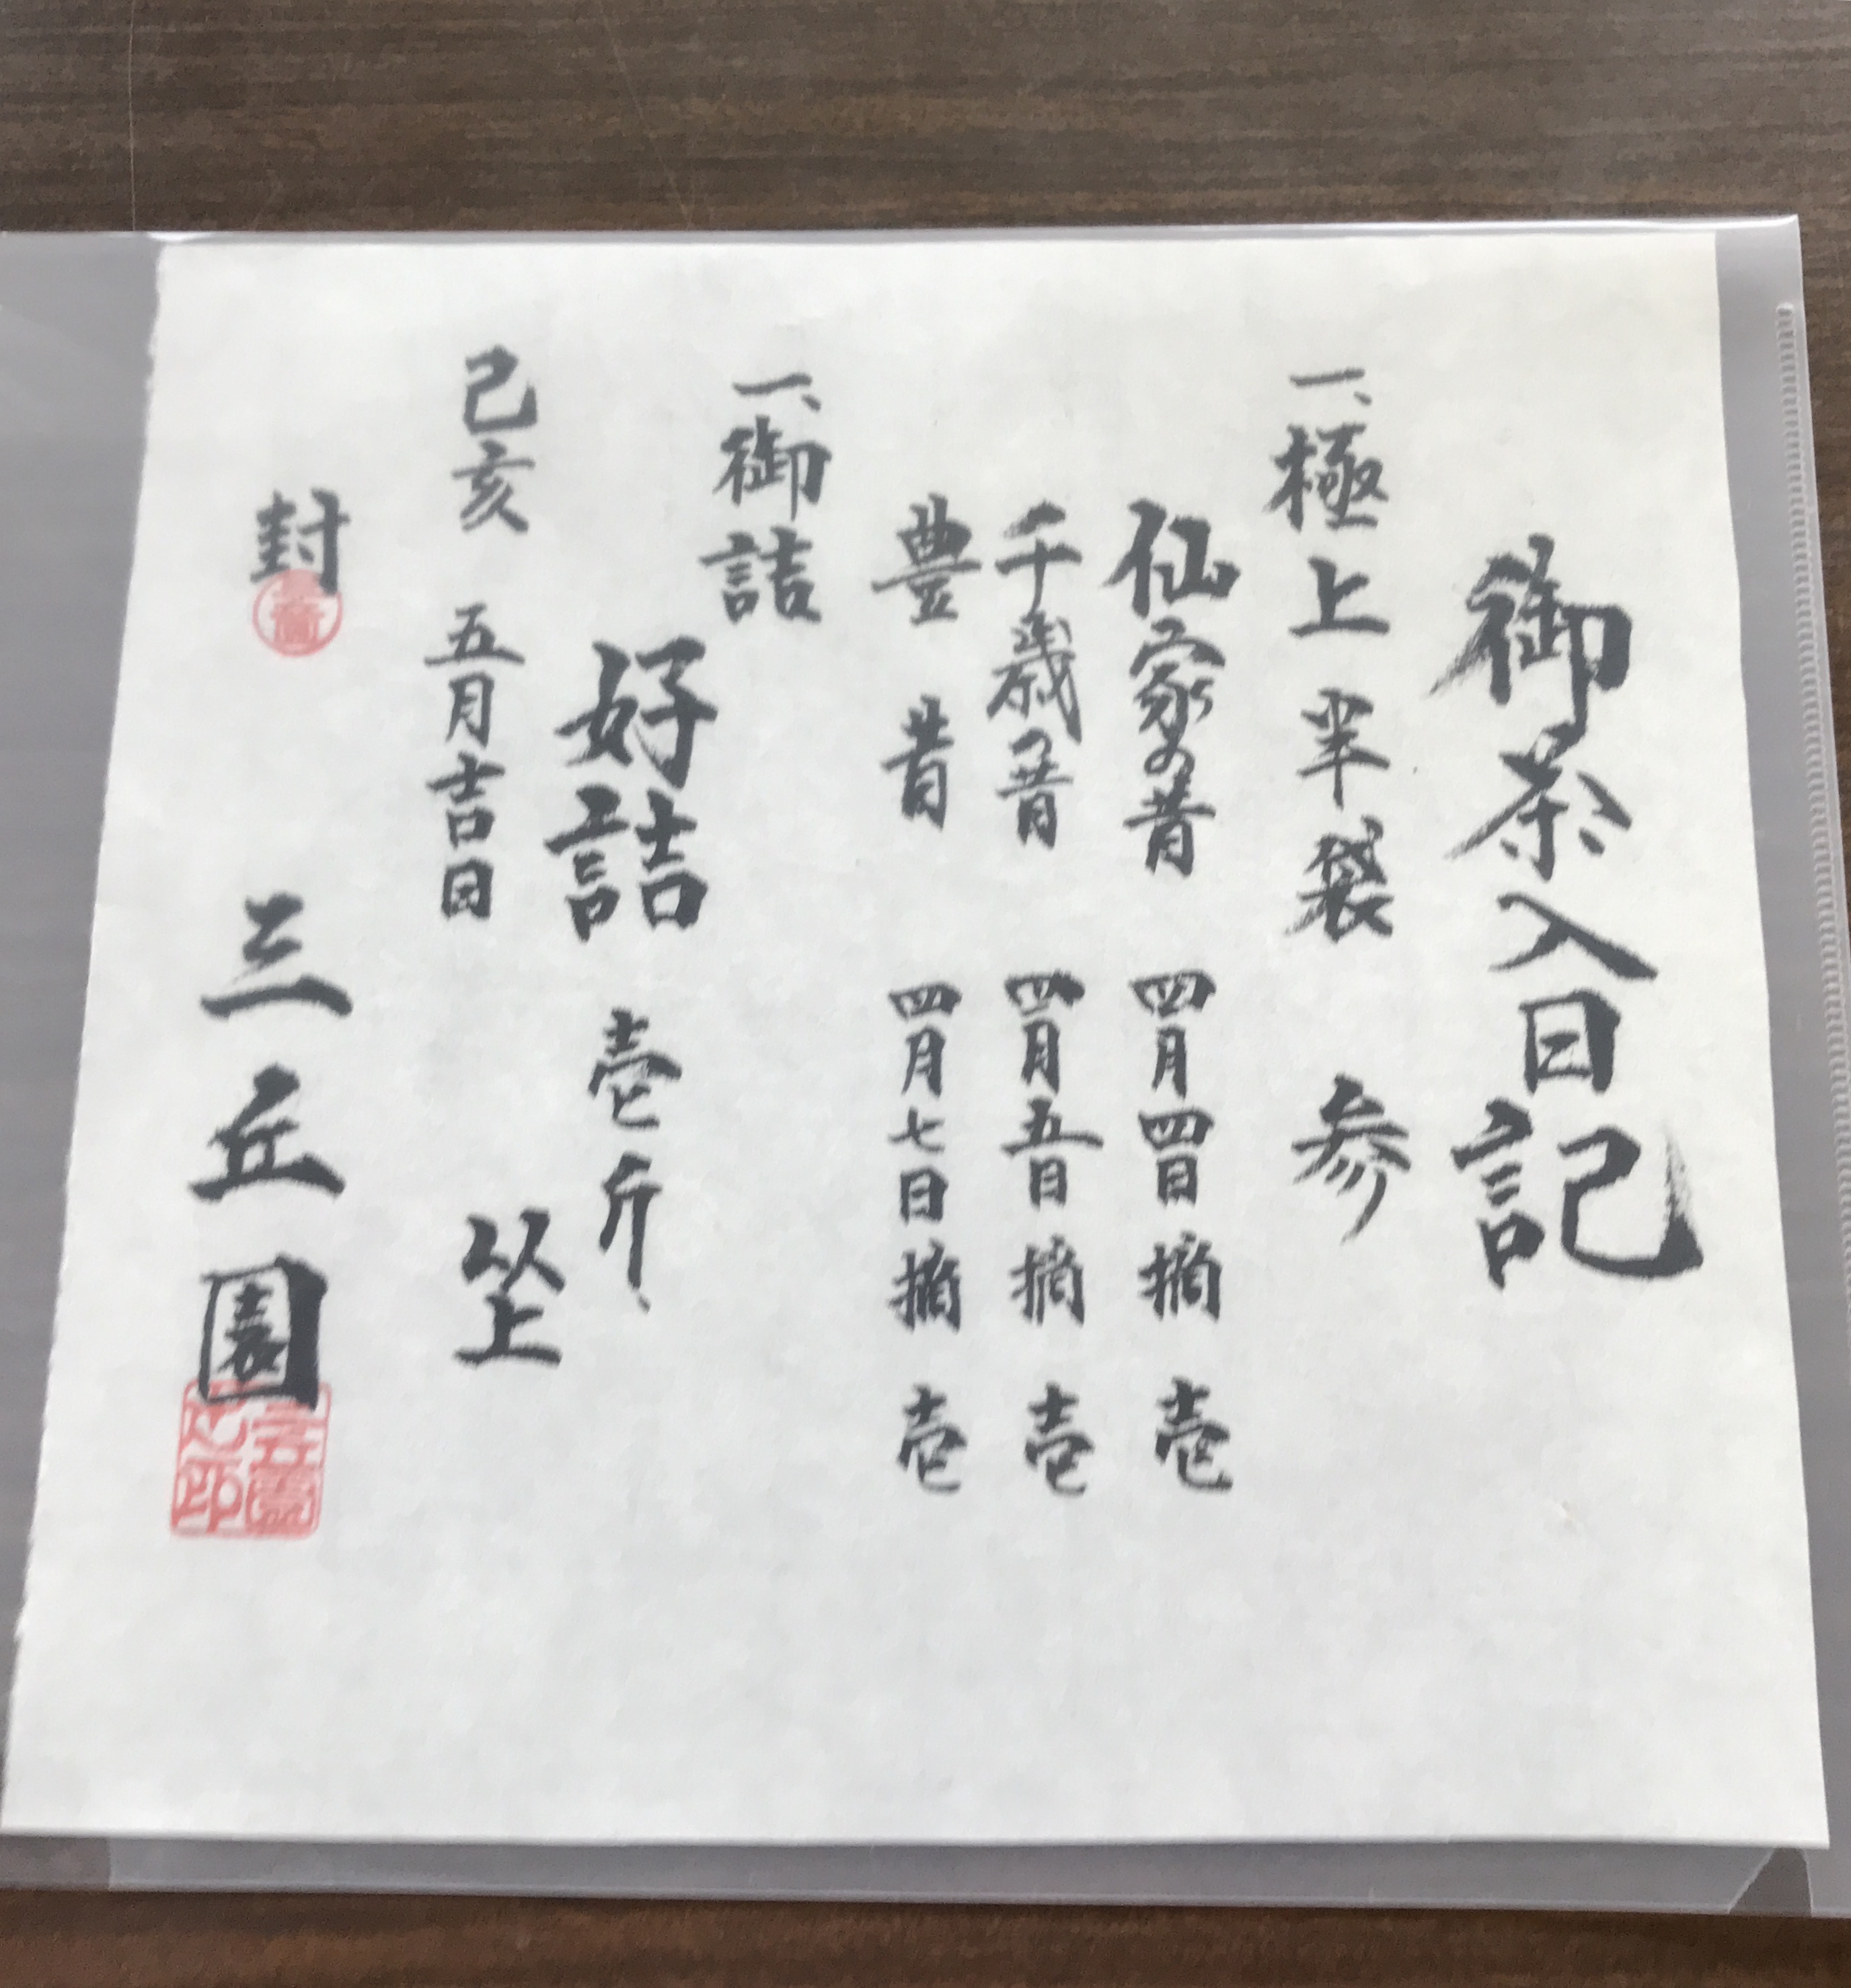 御茶入日記
一、極上半袋 参
仙家の昔 四月四日摘 壱
千歳の昔 四月五日摘 壱
豊昔 四月七日摘 壱
一、御詰
好詰 壱斤、
以上
己亥 五月吉日
封
三丘園